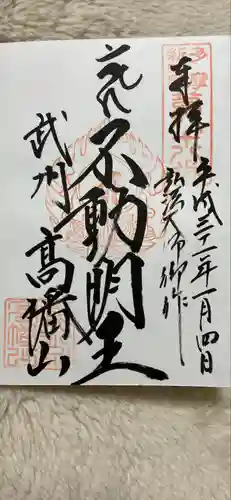 奉拝
平成三十一年一月四日
弘法大師御作
不動明王
武州
高幡山